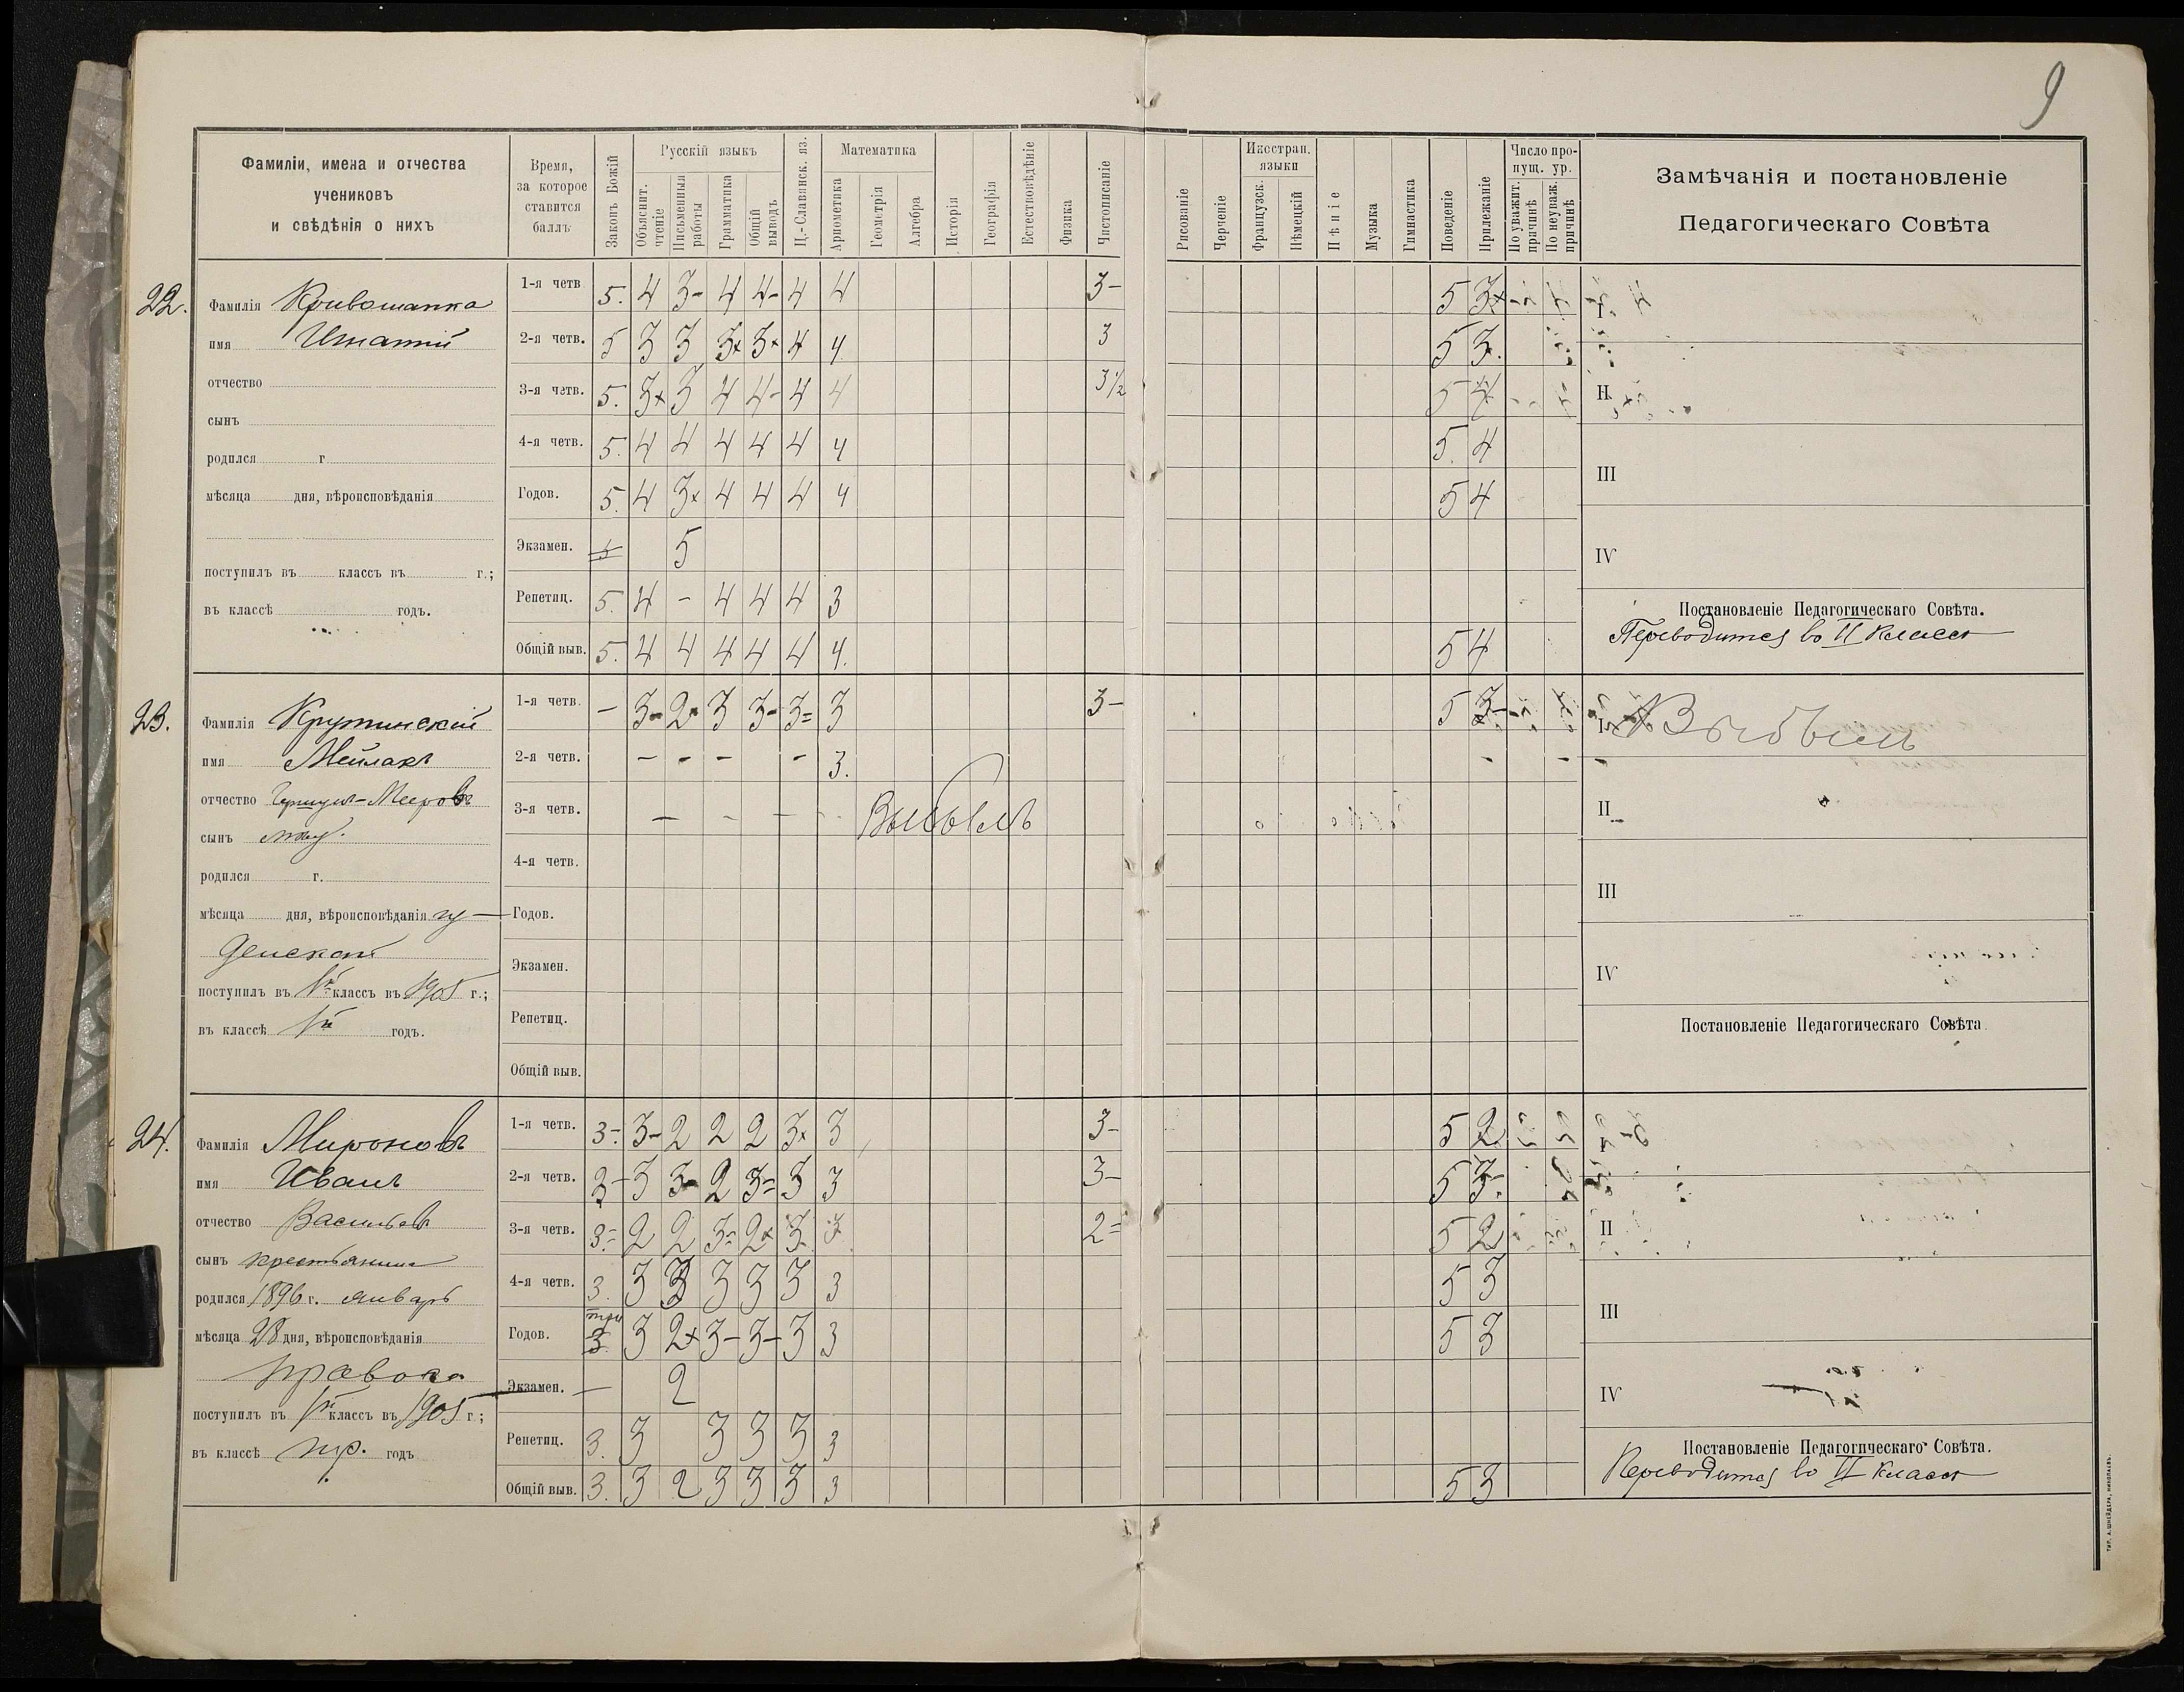 9
Фамиліи, имена и отчества
учениковъ
и свѣдѣнія о нихъ
Время,
за которое
ставится
баллъ
Законъ Божій
Русскій языкъ
Объяснит.
чтеніе
Письменныя
работы
Грамматика
Общій
выводъ
Ц.-Славянск. яз.
Математика
Ариѳметика
Геометрія
Алгебра
Исторія
Географія
Естествовѣдѣніе
Физика
Чистописаніе
Рисованіе
Черченіе
Иностран.
языки
Французск.
Нѣмецкій
Пѣніе
Музыка
Гимнастика
Поведеніе
Прилежаніе
Число про-
пущ. ур.
По уважит.
причинѣ
По неуваж.
причинѣ
Замѣчанія и постановленіе
Педагогическаго Совѣта
22.
Фамилія Кривошапка
имя Игнатій
отчество
сынъ
родился г
мѣсяца дня, вѣроисповѣданія
поступилъ въ классъ въ г.;
въ классѣ годъ.
1-я четв. 5. 4 3- 4 4- 4 4 3- 5 3х
2-я четв. 5 3 3 3х 3х 4 4. 3 5 3.
3-я четв. 5. 3х 3 4 4- 4 4 3½ 5 4
4-я четв. 5. 4 4 4 4 4 4 5. 4
Годов. 5. 4 3х 4 4 4 4 5 4
Экзамен. 5
Репетиц. 5. 4 - 4 4 4 3
Общій выв. 5. 4 4 4 4 4 4. 5 4
I
II
III
IV
Постановленіе Педагогическаго Совѣта.
Переводится во II классъ
23.
Фамилія Крутинскій
имя Мейлахъ
отчество Мееровъ
сынъ
родился г.
мѣсяца дня, вѣроисповѣданія іу-
дейскаго
поступилъ въ Iй классъ въ 1905 г.;
въ классѣ Iй годъ.
1-я четв. - 3- 2х 3 3- 3= 3 3- 5 3-
2-я четв. - - - - 3.
3-я четв. - - - Выбылъ
4-я четв.
Годов.
Экзамен.
Репетиц.
Общій выв.
I Выбылъ
II
III
IV
Постановленіе Педагогическаго Совѣта
24.
Фамилія Мироновъ
имя Иванъ
отчество Васильевъ
сынъ крестьянина
родился 1896 г. январь
мѣсяца 28 дня, вѣроисповѣданія
правосл
поступилъ въ Iй классъ въ 1905 г;
въ классѣ пр. годъ
1-я четв. 3-. 3- 2 2 2 3х 3 3- 5 2
2-я четв. 3- 3 3- 2 3= 3 3 3- 5 3-
3-я четв. 3=. 2 2 3= 2х 3 3 2= 5 2
4-я четв. 3. 3 3 3 3 3 3 5 3
Годов. три 3. 3 2х 3- 3- 3 3 5 3
Экзамен. - 2
Репетиц. 3. 3 3 3 3 3
Общій выв. 3. 3 2 3 3 3 3 5 3
I
II
III
IV
Постановленіе Педагогическаго Совѣта.
Переводится во II классъ
ТИП. А. ШНЕЙДЕРА, НИКОЛАЕВЪ.